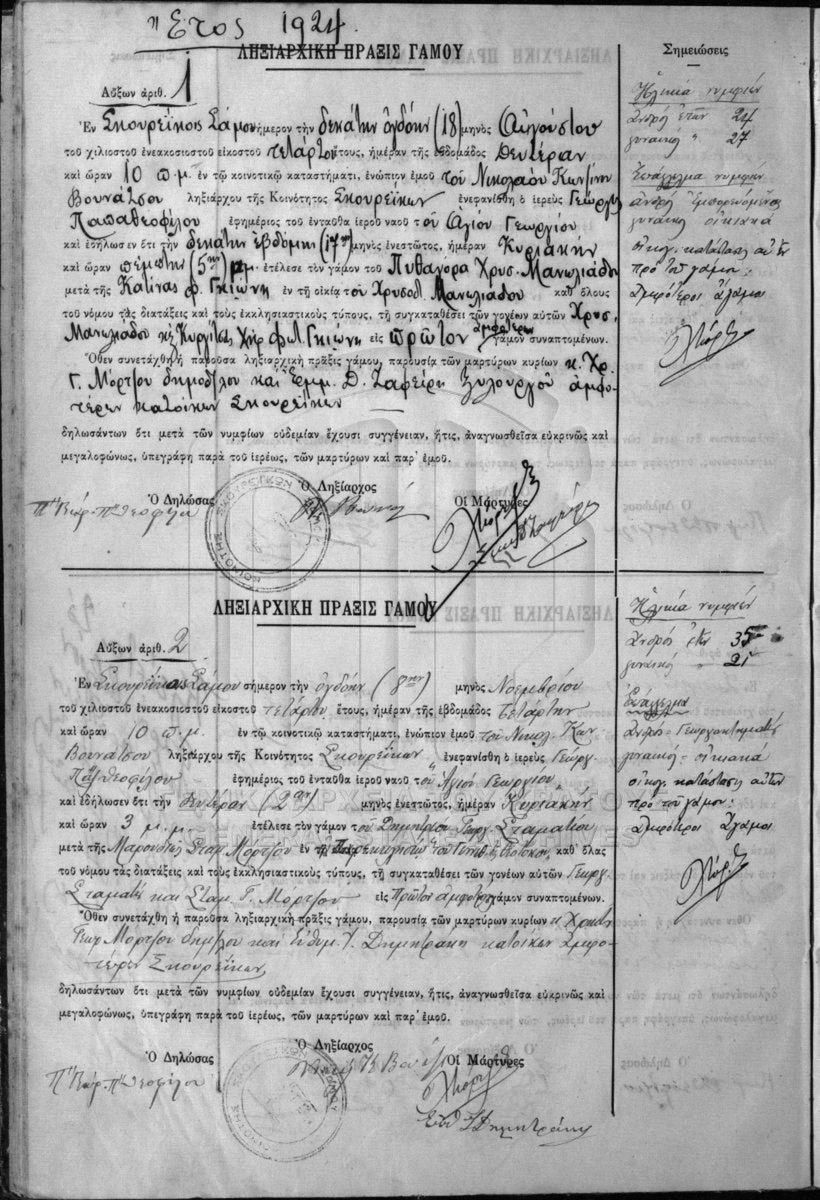 Ἔτος 1924
ΛΗΞΙΑΡΧΙΚΗ ΠΡΑΞΙΣ ΓΑΜΟΥ
Αὔξων ἀριθ. 1
Ἐν Σκουρέϊκοις Σάμου σήμερον τὴν δεκάτην ὀγδόην (18) μηνὸς Αὐγούστου
τοῦ χιλιοστοῦ ἐνεακοσιοστοῦ εἰκοστοῦ τετάρτου ἔτους, ἡμέραν τῆς ἑβδομάδος Δευτέραν
καὶ ὥραν 10 π.μ. ἐν τῷ κοινοτικῷ καταστήματι, ἐνώπιον ἐμοῦ τοῦ Νικολάου
Βουνάτσου ληξιάρχου τῆς Κοινότητος Σκουρέϊκων ἐνεφανίσθη ὁ ἱερεὺς Γεώργ.
Παπαθεοφίλου ἐφημέριος τοῦ ἐνταῦθα ἱεροῦ ναοῦ τοῦ Ἁγίου Γεωργίου
καὶ ἐδήλωσεν ὅτι τὴν δεκάτην ἑβδόμην (17ην) μηνὸς ἐνεστῶτος, ἡμέραν Κυριακὴν
καὶ ὥραν πέμπτην (5ην) μ.μ. ἐτέλεσε τὸν γάμον τοῦ Πυθαγόρα Χρυσ. Μανωλιάδου
μετὰ τῆς Καλίτσας φ. Γκιώνη ἐν τῇ οἰκίᾳ τοῦ Χρυσοδ. Μανωλιάδου καθ' ὅλους
τοῦ νόμου τὰς διατάξεις καὶ τοὺς ἐκκλησιαστικοὺς τύπους, τῇ συγκαταθέσει τῶν γονέων αὐτῶν Χρυσ.
Μανωλιάδου χήρ. Φιλ. Γκιώνη εἰς πρῶτον ἀμφοτέρων γάμον συναπτομένων.
Ὅθεν συνετάχθη ἡ παροῦσα ληξιαρχικὴ πρᾶξις γάμου, παρουσίᾳ τῶν μαρτύρων κυρίων κ. Χρ.
Γ. Μόρτζου δημοδ/λου καὶ Ἐμμ. Δ. Ζαφείρη ξυλουργοῦ ἀμφο-
τέρων κατοίκων Σκουρεΐκων
δηλωσάντων ὅτι μετὰ τῶν νυμφίων οὐδεμίαν ἔχουσι συγγένειαν, ἥτις, ἀναγνωσθεῖσα εὐκρινῶς καὶ
μεγαλοφώνως, ὑπεγράφη παρὰ τοῦ ἱερέως, τῶν μαρτύρων καὶ παρ' ἐμοῦ.
Ὁ Δηλώσας Ὁ Ληξίαρχος Οἱ Μάρτυρες
ΚΟΙΝΟΤΗΣ ΣΚΟΥΡΕΪΚΩΝ
Σημειώσεις
Ἡλικία νυμφίων
Ἀνδρὸς ἐτῶν 24
γυναικὸς " 27
Ἐπάγγελμα νυμφίων
ἀνδρὸς
γυναικὸς οἰκιακά
οἰκογ. κατάστασις αὐτῶν
πρὸ τοῦ γάμου:
Ἀμφότεροι ἄγαμοι
ΛΗΞΙΑΡΧΙΚΗ ΠΡΑΞΙΣ ΓΑΜΟΥ
Αὔξων ἀριθ. 2
Ἐν Σκουρέϊκοις Σάμου σήμερον τὴν ὀγδόην (8ην) μηνὸς Νοεμβρίου
τοῦ χιλιοστοῦ ἐνεακοσιοστοῦ εἰκοστοῦ τετάρτου ἔτους, ἡμέραν τῆς ἑβδομάδος Τετάρτην
καὶ ὥραν 10 π.μ. ἐν τῷ κοινοτικῷ καταστήματι, ἐνώπιον ἐμοῦ τοῦ Νικολ. Κων
Βουνάτσου ληξιάρχου τῆς Κοινότητος Σκουρεΐκων ἐνεφανίσθη ὁ ἱερεὺς Γεώργ.
Παπαθεοφίλου ἐφημέριος τοῦ ἐνταῦθα ἱεροῦ ναοῦ τοῦ Ἁγίου Γεωργίου
καὶ ἐδήλωσεν ὅτι τὴν Δευτέραν (2αν) μηνὸς ἐνεστῶτος, ἡμέραν Κυριακὴν
καὶ ὥραν 3 μ.μ. ἐτέλεσε τὸν γάμον τοῦ Δημητρίου Γεωργ. Σταματίου
μετὰ τῆς Μαρουδιῶς Σταμ. Μόρτζου ἐν καθ' ὅλας
τοῦ νόμου τὰς διατάξεις καὶ τοὺς ἐκκλησιαστικοὺς τύπους, τῇ συγκαταθέσει τῶν γονέων αὐτῶν Γεωργ.
Σταματίου καὶ Σταμ. Γ. Μόρτζου εἰς Πρῶτον ἀμφοτέρων γάμον συναπτομένων.
Ὅθεν συνετάχθη ἡ παροῦσα ληξιαρχικὴ πρᾶξις γάμου, παρουσίᾳ τῶν μαρτύρων κυρίων κ.
Γεωρ Μόρτζου δημ/λου καὶ Εὐθυμ. Γ. Δημητράκη κατοίκων ἀμφο-
τέρων Σκουρεΐκων
δηλωσάντων ὅτι μετὰ τῶν νυμφίων οὐδεμίαν ἔχουσι συγγένειαν, ἥτις, ἀναγνωσθεῖσα εὐκρινῶς καὶ
μεγαλοφώνως, ὑπεγράφη παρὰ τοῦ ἱερέως, τῶν μαρτύρων καὶ παρ' ἐμοῦ.
Ὁ Δηλώσας Ὁ Ληξίαρχος Οἱ Μάρτυρες
Δημητράκης
Ἡλικία νυμφίων
Ἀνδρὸς ἐτῶν 35
γυναικὸς " 21
Ἐπάγγελμα
Ἀνδρὸς = Γεωργοκτηματίας
γυναικὸς = οἰκιακά
οἰκογ. κατάστασις αὐτῶν
πρὸ τοῦ γάμου:
Ἀμφότεροι ἄγαμοι